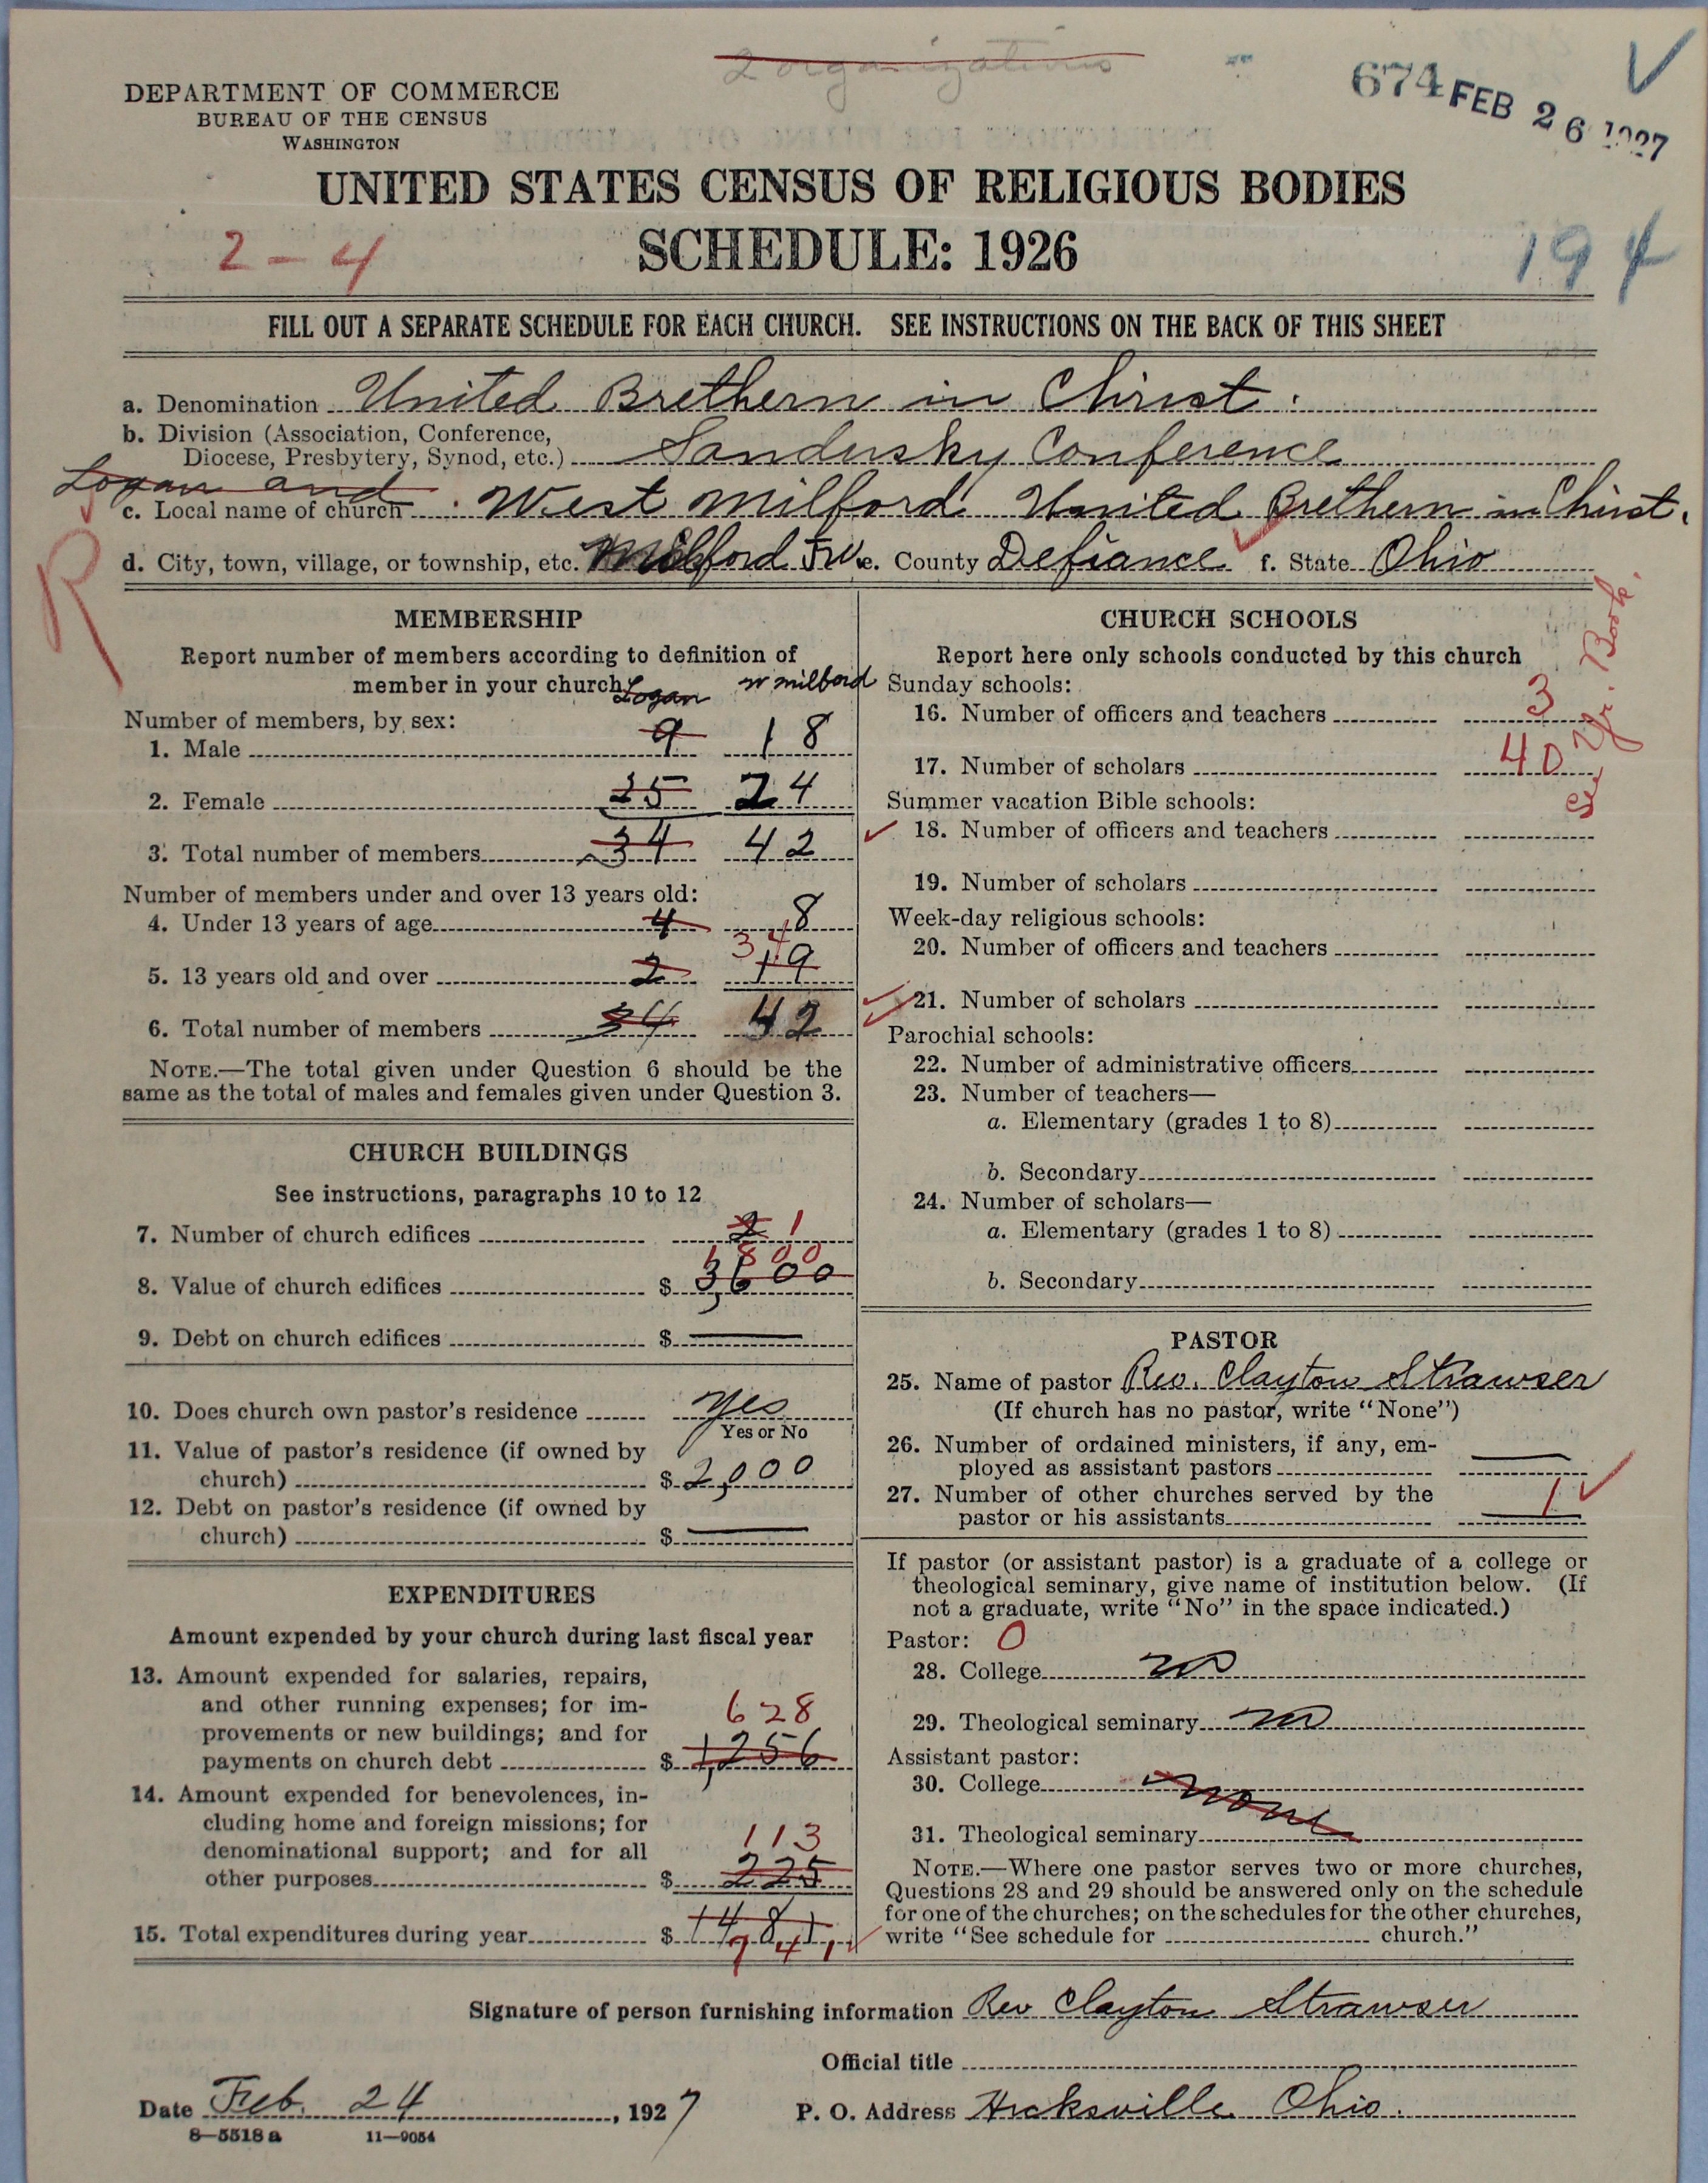 2 organizations
674 FEB 26 1927
DEPARTMENT OF COMMERCE
BUREAU OF THE CENSUS
WASHINGTON
UNITED STATES CENSUS OF RELIGIOUS BODIES
2-4 SCHEDULE: 1926 194
FILL OUT A SEPARATE SCHEDULE FOR EACH CHURCH. SEE INSTRUCTIONS ON THE BACK OF THIS SHEET
a. Denomination United Brethern in Christ.
b. Division (Association, Conference,
Diocese, Presbytery, Synod, etc.) Sandusky Conference
Logan and
c. Local name of church West Milford United Brethern in Christ.
d. City, town, village, or township, etc. Milford Tw e. County Defiance f. State Ohio
R
MEMBERSHIP
Report number of members according to definition of
member in your church Logan W Milford
Number of members, by sex:
1. Male 9 18
2. Female 25 24
3. Total number of members 34 42
Number of members under and over 13 years old:
4. Under 13 years of age 4 8
34
5. 13 years old and over 2 19
6. Total number of members 34 42
NOTE.—The total given under Question 6 should be the
same as the total of males and females given under Question 3.
CHURCH BUILDINGS
See instructions, paragraphs 10 to 12
7. Number of church edifices 2 1
1800
8. Value of church edifices $ 3,600
9. Debt on church edifices $
10. Does church own pastor's residence yes
Yes or No
11. Value of pastor's residence (if owned by
church) $ 2,000
12. Debt on pastor's residence (if owned by
church) $
EXPENDITURES
Amount expended by your church during last fiscal year
13. Amount expended for salaries, repairs,
and other running expenses; for im-
provements or new buildings; and for 628
payments on church debt $ 1,256
14. Amount expended for benevolences, in-
cluding home and foreign missions; for
denominational support; and for all 113
other purposes $ 225
15. Total expenditures during year $ 1481
741
CHURCH SCHOOLS
Report here only schools conducted by this church
Sunday schools:
16. Number of officers and teachers 3
17. Number of scholars 40
See Yr. Book.
Summer vacation Bible schools:
18. Number of officers and teachers
19. Number of scholars
Week-day religious schools:
20. Number of officers and teachers
21. Number of scholars
Parochial schools:
22. Number of administrative officers
23. Number of teachers—
a. Elementary (grades 1 to 8)
b. Secondary
24. Number of scholars—
a. Elementary (grades 1 to 8)
b. Secondary
PASTOR
25. Name of pastor Rev. Clayton Strawser
(If church has no pastor, write "None")
26. Number of ordained ministers, if any, em-
ployed as assistant pastors
27. Number of other churches served by the
pastor or his assistants 1
If pastor (or assistant pastor) is a graduate of a college or
theological seminary, give name of institution below. (If
not a graduate, write "No" in the space indicated.)
Pastor: 0
28. College no
29. Theological seminary no
Assistant pastor:
30. College none
31. Theological seminary
NOTE.—Where one pastor serves two or more churches,
Questions 28 and 29 should be answered only on the schedule
for one of the churches; on the schedules for the other churches,
write "See schedule for church."
Signature of person furnishing information Rev Clayton Strawser
Official title
Date Feb. 24, 1927 P. O. Address Hicksville Ohio.
8—5518 a 11—9054